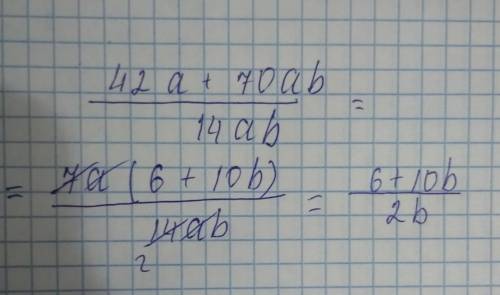 42a + 70ab
14ab
=
= 7a (6 + 10b)
14ab
2
= 6+10b
2b